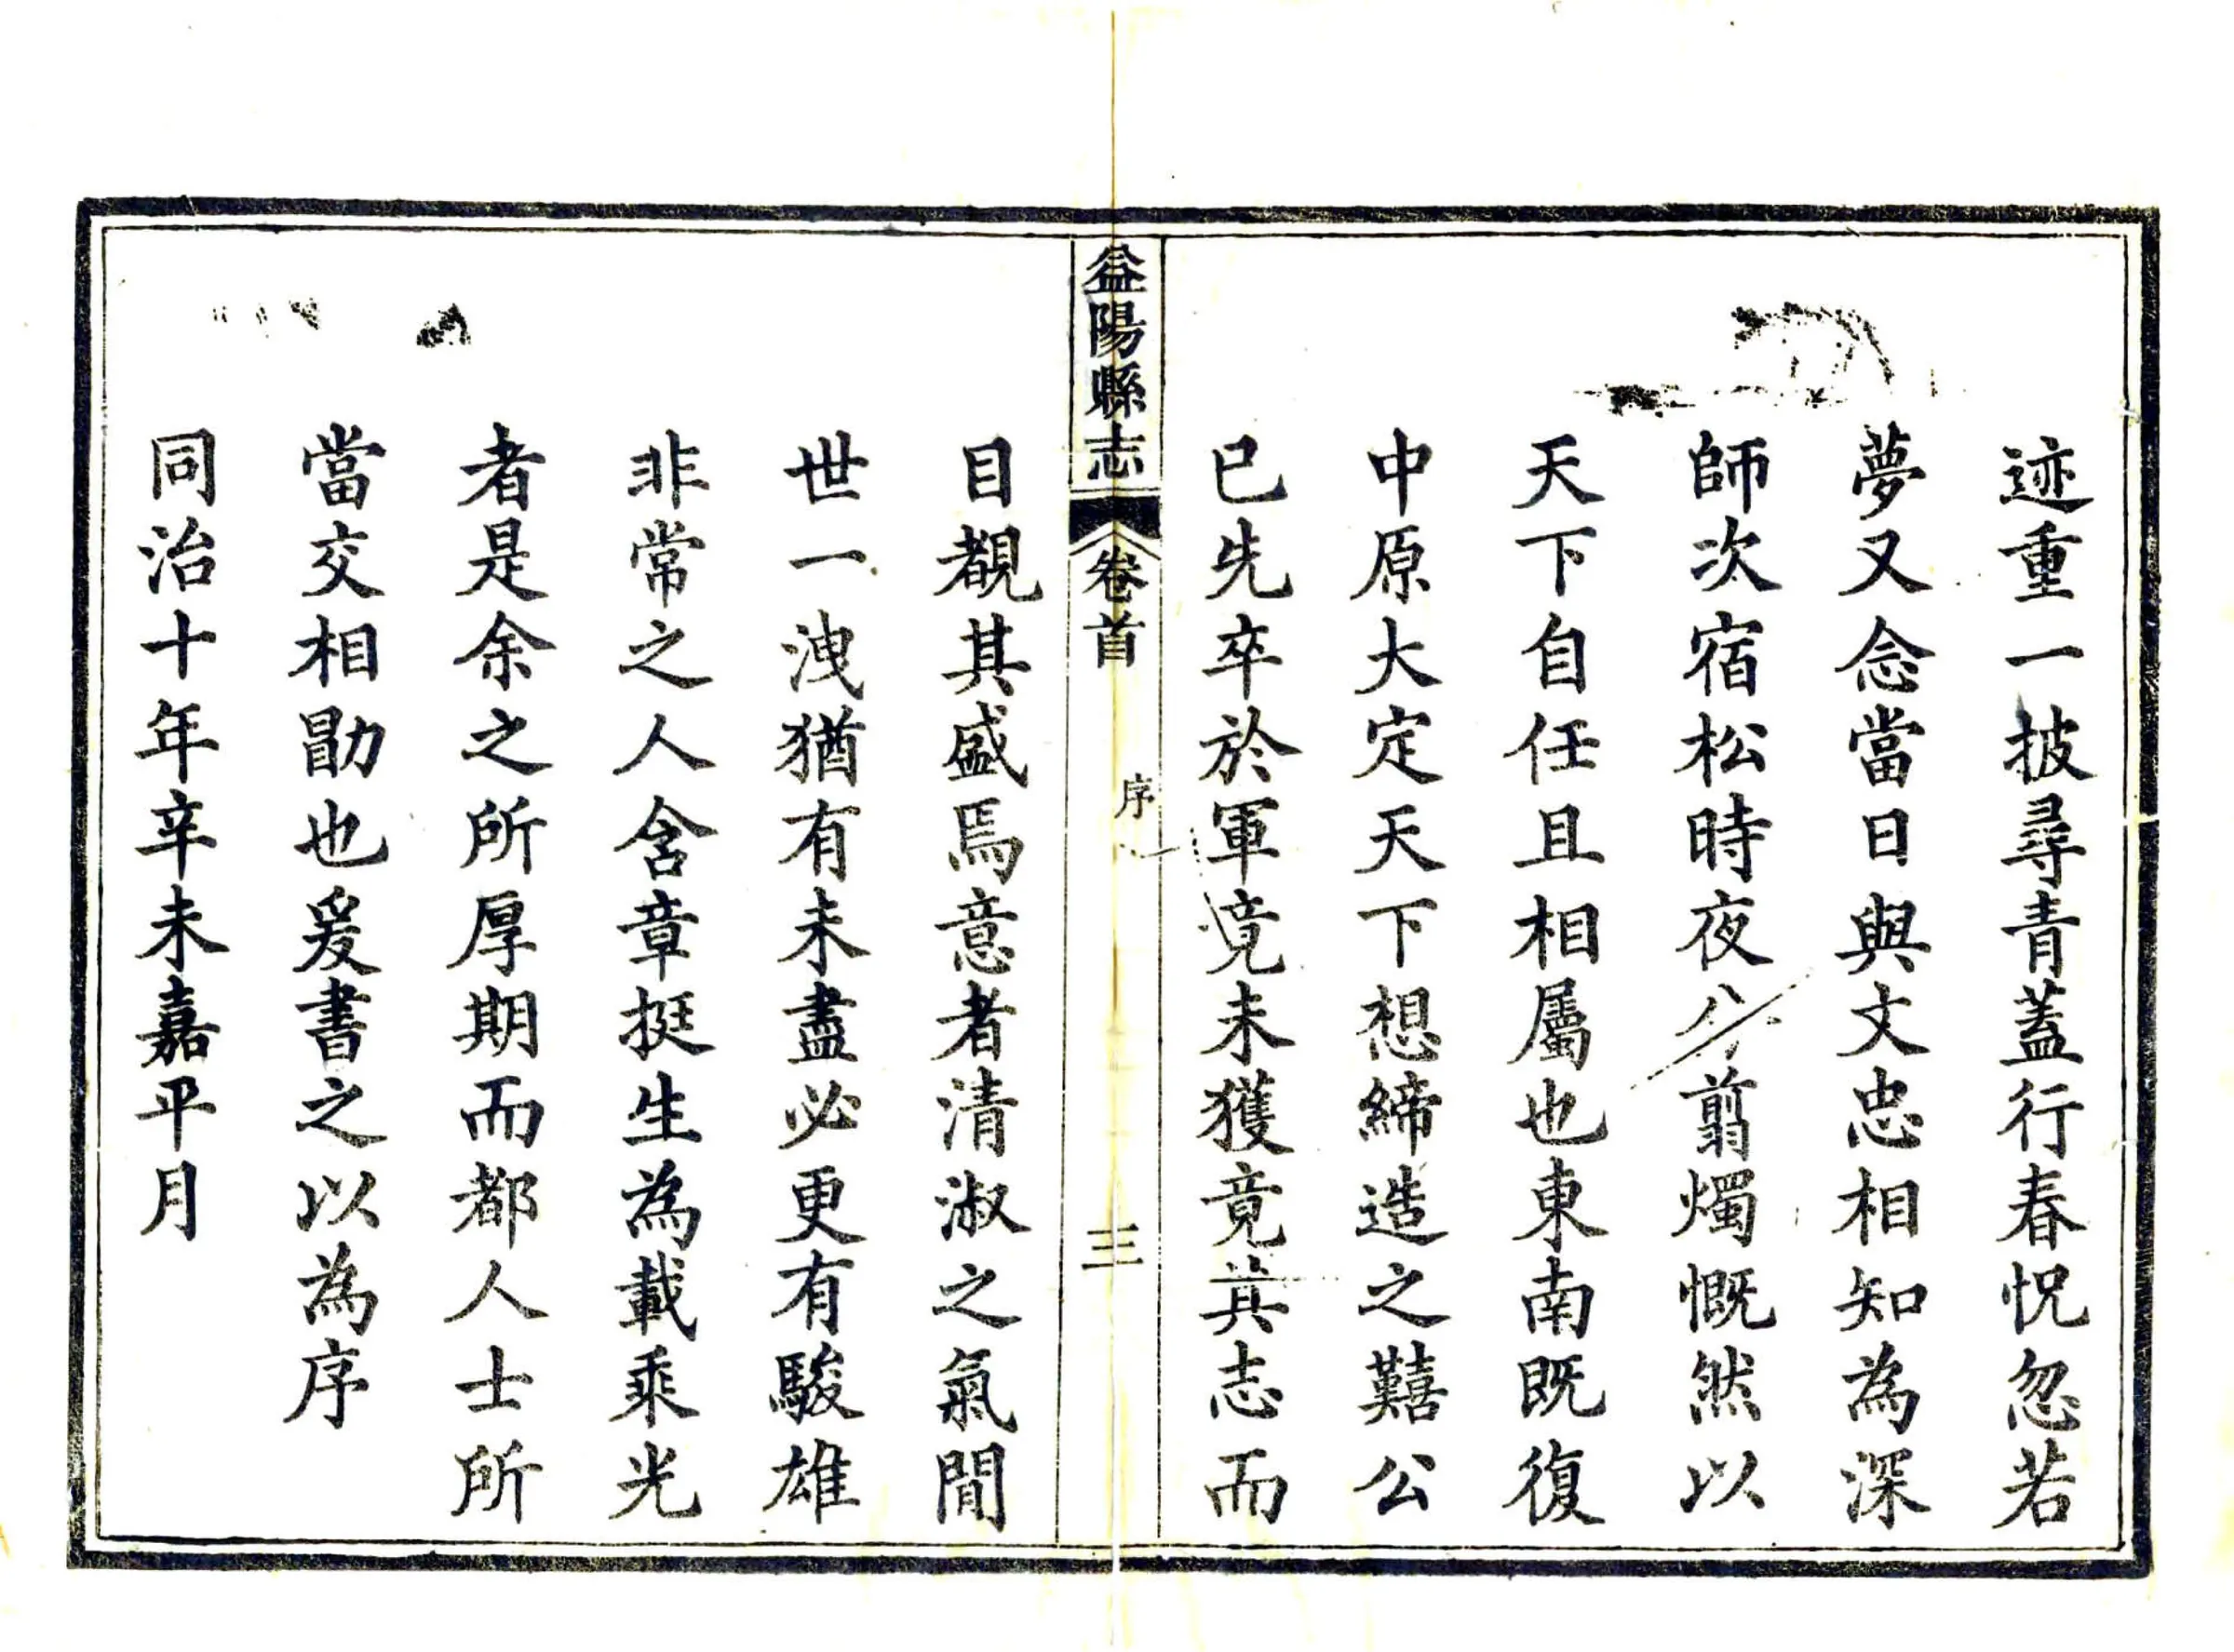 迹重一披尋青蓋行春怳忽若
夢又念當日與文忠相知為深
師次宿松時夜分翦燭慨然以
天下自任且相屬也東南既復
中原大定天下想締造之囏公
已先卒於軍竟未獲竟其志而
益陽縣志 卷首 序 三
目覩其盛焉意者清淑之氣閒
世一洩猶有未盡必更有駿雄
非常之人含章挺生為載乘光
者是余之所厚期而都人士所
當交相勖也爰書之以為序
同治十年辛未嘉平月